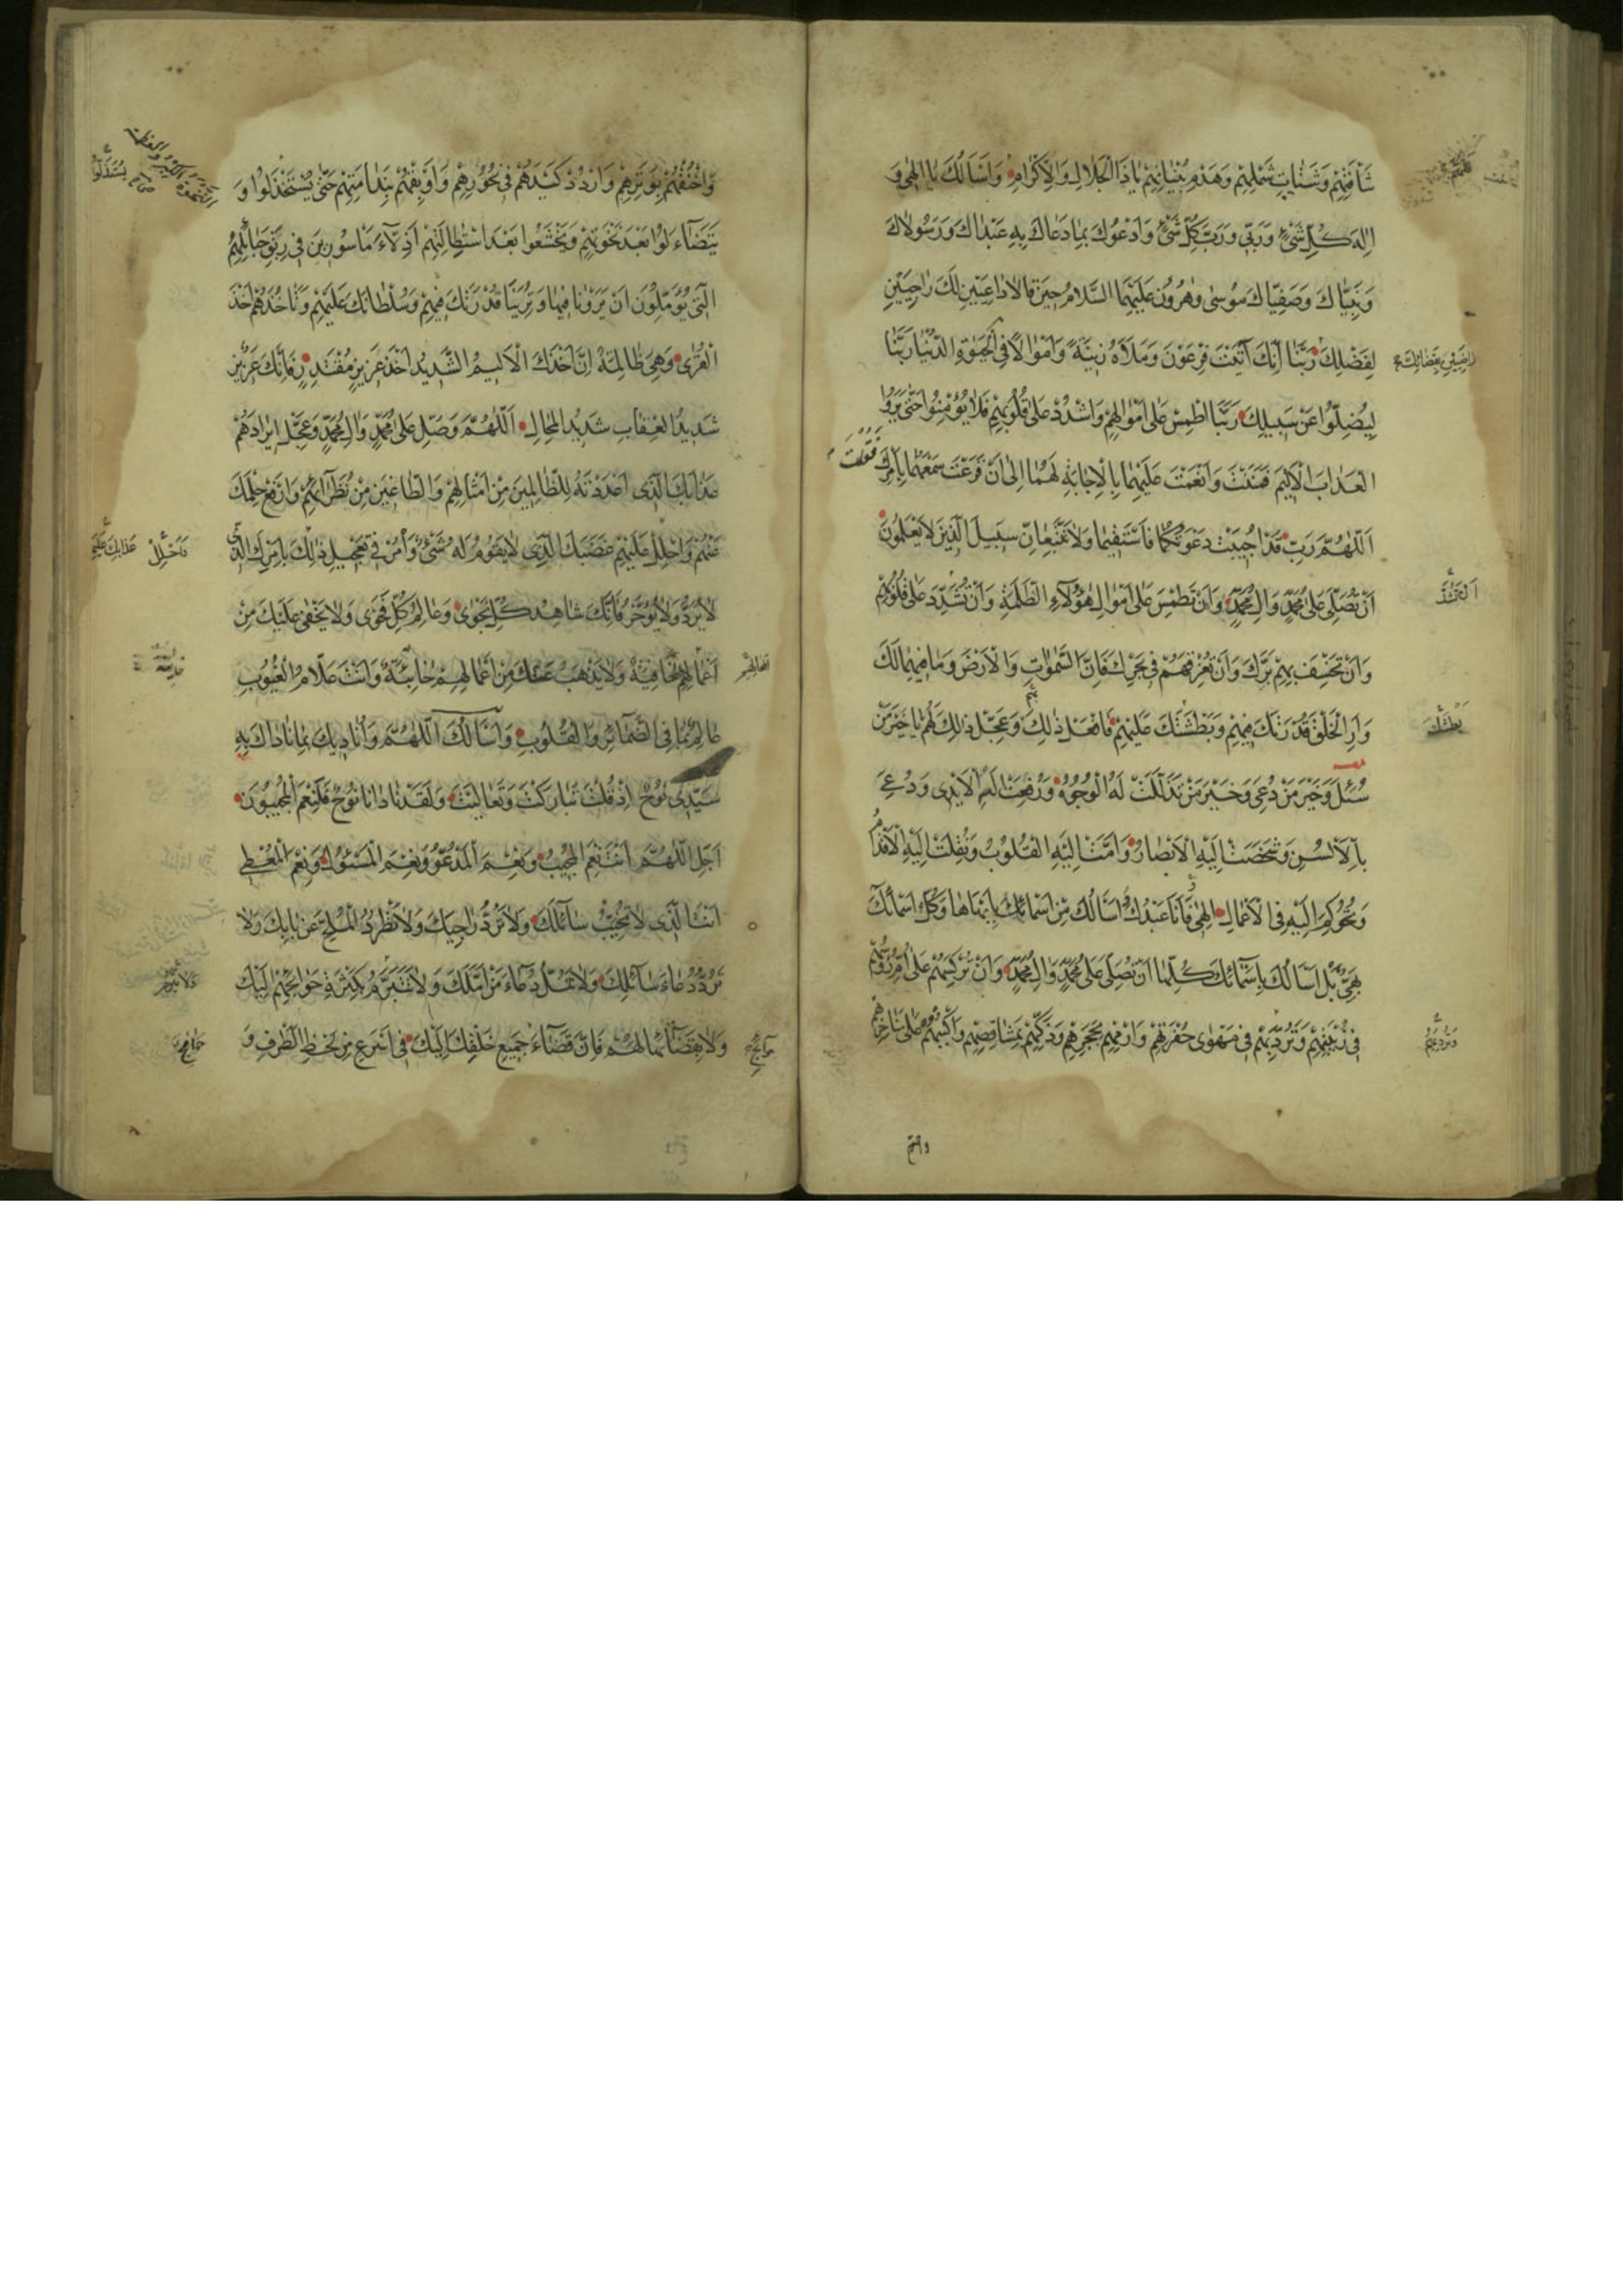 شَأْفَتِهِمْ وَشَتَاتِ شَمْلِهِمْ وَهَدْمِ بُنْيَانِهِمْ يَاذَا الْجَلَالِ وَالْاِكْرَامِ وَاَسْاَلُكَ يَا اِلٰهِي وَ
اِلٰهَ كُلِّ شَيْءٍ وَرَبِّي وَرَبَّ كُلِّ شَيْءٍ وَاَدْعُوكَ بِمَا دَعَاكَ بِهِ عَبْدَاكَ وَرَسُولَاكَ
وَنَبِيَّاكَ وَصَفِيَّاكَ مُوسٰى وَهٰرُونُ عَلَيْهِمَا السَّلَامُ حِينَ قَالَا دَاعِيَيْنِ لَكَ رَاجِيَيْنِ
لِفَضْلِكَ رَبَّنَا اِنَّكَ آتَيْتَ فِرْعَوْنَ وَمَلَاَهُ زِينَةً وَاَمْوَالًا فِي الْحَيٰوةِ الدُّنْيَا رَبَّنَا
لِيُضِلُّوا عَنْ سَبِيلِكَ رَبَّنَا اطْمِسْ عَلٰى اَمْوَالِهِمْ وَاشْدُدْ عَلٰى قُلُوبِهِمْ فَلَا يُؤْمِنُوا حَتّٰى يَرَوُا
الْعَذَابَ الْاَلِيمَ فَمَنَنْتَ وَاَنْعَمْتَ عَلَيْهِمَا بِالْاِجَابَةِ لَهُمَا اِلٰى اَنْ قَرَعْتَ سَمْعَهُمَا بِاَمْرِكَ
فَقُلْتَ
اَللّٰهُمَّ رَبِّ قَدْ اُجِيبَتْ دَعْوَتُكُمَا فَاسْتَقِيمَا وَلَا تَتَّبِعَانِّ سَبِيلَ الَّذِينَ لَا يَعْلَمُونَ
اَنْ تُصَلِّيَ عَلٰى مُحَمَّدٍ وَآلِ مُحَمَّدٍ وَاَنْ تَطْمِسَ عَلٰى اَمْوَالِ هٰؤُلَاءِ الظَّلَمَةِ وَاَنْ تُشَدِّدَ عَلٰى قُلُوبِهِمْ
وَاَنْ تَخْسِفَ بِهِمْ بَرَّكَ وَاَنْ تُغْرِقَهُمْ فِي بَحْرِكَ فَاِنَّ السَّمٰوَاتِ وَالْاَرْضَ وَمَا فِيهِمَا لَكَ
وَاَرِ الْخَلْقَ قُدْرَتَكَ فِيهِمْ وَبَطْشَتَكَ عَلَيْهِمْ فَافْعَلْ ذٰلِكَ وَعَجِّلْ ذٰلِكَ لَهُمْ يَا خَيْرَ مَنْ
سُئِلَ وَخَيْرَ مَنْ دُعِيَ وَخَيْرَ مَنْ تَذَلَّلَتْ لَهُ الْوُجُوهُ وَرُفِعَتْ اِلَيْهِ الْاَيْدِي وَدُعِيَ
بِالْاَلْسُنِ وَشَخَصَتْ اِلَيْهِ الْاَبْصَارُ وَاَمَّتْ اِلَيْهِ الْقُلُوبُ وَنُقِلَتْ اِلَيْهِ الْاَقْدَامُ
وَتُحُوكِمَ اِلَيْهِ فِي الْاَعْمَالِ اِلٰهِي فَاَنَا عَبْدُكَ اَسْاَلُكَ مِنْ اَسْمَائِكَ بِاَبْهَاهَا وَكُلُّ اَسْمَائِكَ
بَهِيٌّ بَلْ اَسْاَلُكَ بِاَسْمَائِكَ كُلِّهَا اَنْ تُصَلِّيَ عَلٰى مُحَمَّدٍ وَآلِ مُحَمَّدٍ وَاَنْ تُرْكِسَهُمْ عَلٰى اُمِّ رُؤُسِهِمْ
فِي زُبْيَتِهِمْ وَتُرْدِيَهُمْ فِي مَهْوٰى حُفْرَتِهِمْ وَارْمِهِمْ بِحَجَرِهِمْ وَذَكِّهِمْ بِمَشَاقِصِهِمْ وَاكْبُبْهُمْ عَلٰى مَنَاخِرِهِمْ
بَطْشَكَ
وَاخْنُقْهُمْ بِوَتَرِهِمْ وَارْدُدْ كَيْدَهُمْ فِي نُحُورِهِمْ وَاَوْبِقْهُمْ بِنَدَامَتِهِمْ حَتّٰى يُسْتَخْذَلُوا وَ
يَتَضَاءَلُوا بَعْدَ نَخْوَتِهِمْ وَيَخْشَعُوا بَعْدَ اسْتِطَالَتِهِمْ اَذِلَّاءَ مَأْسُورِينَ فِي رِبَقِ حَبَائِلِهِمُ
الَّتِي يُؤَمِّلُونَ اَنْ يَرَوْنَا فِيهَا وَتُرِيَنَا قُدْرَتَكَ فِيهِمْ وَسُلْطَانَكَ عَلَيْهِمْ وَتَأْخُذَهُمْ اَخْذَ
الْقُرٰى وَهِيَ ظَالِمَةٌ اِنَّ اَخْذَكَ الْاَلِيمُ الشَّدِيدُ اَخْذَ عَزِيزٍ مُقْتَدِرٍ فَاِنَّكَ عَزِيزٌ
شَدِيدُ الْعِقَابِ شَدِيدُ الْمِحَالِ اَللّٰهُمَّ وَصَلِّ عَلٰى مُحَمَّدٍ وَآلِ مُحَمَّدٍ وَعَجِّلْ اِيرَادَهُمْ
عَذَابَكَ الَّذِي اَعْدَدْتَهُ لِلظَّالِمِينَ مِنْ اَمْثَالِهِمْ وَالطَّاغِينَ مِنْ نُظَرَائِهِمْ وَارْفَعْ حِلْمَكَ
عَنْهُمْ وَاحْلُلْ عَلَيْهِمْ غَضَبَكَ الَّذِي لَا يَقُومُ لَهُ شَيْءٌ وَأْمُرْ فِي تَعْجِيلِ ذٰلِكَ بِاَمْرِكَ الَّذِي
لَا يُرَدُّ وَلَا يُؤَخَّرُ فَاِنَّكَ شَاهِدُ كُلِّ نَجْوٰى وَعَالِمُ كُلِّ فَحْوٰى وَلَا يَخْفٰى عَلَيْكَ مِنْ
اَعْمَالِهِمْ خَافِيَةٌ وَلَا يَذْهَبُ عَنْكَ مِنْ اَعْمَالِهِمْ خَائِنَةٌ وَاَنْتَ عَلَّامُ الْغُيُوبِ
عَالِمٌ بِمَا فِي الضَّمَائِرِ وَالْقُلُوبِ وَاَسْاَلُكَ اَللّٰهُمَّ وَاُنَادِيكَ بِمَا نَادَاكَ بِهِ
سَيِّدِي نُوحٌ اِذْ قُلْتَ تَبَارَكْتَ وَتَعَالَيْتَ وَلَقَدْ نَادَانَا نُوحٌ فَلَنِعْمَ الْمُجِيبُونَ
اَجَلِ اللّٰهُمَّ اَنْتَ نِعْمَ الْمُجِيبُ وَنِعْمَ الْمَدْعُوُّ وَنِعْمَ الْمَسْئُولُ وَنِعْمَ الْمُعْطِي
اَنْتَ الَّذِي لَا تُخَيِّبُ سَائِلَكَ وَلَا تَرُدُّ رَاجِيَكَ وَلَا تَطْرُدُ الْمُلِحَّ عَنْ بَابِكَ وَلَا
تَرُدُّ دُعَاءَ سَائِلِكَ وَلَا تَمَلُّ دُعَاءَ مَنْ اَمَّلَكَ وَلَا تَتَبَرَّمُ بِكَثْرَةِ حَوَائِجِهِمْ اِلَيْكَ
وَلَا بِقَضَائِهَا لَهُمْ فَاِنَّ قَضَاءَ جَمِيعِ خَلْقِكَ اِلَيْكَ فِي اَسْرَعِ مِنْ لَحْظِ الطَّرْفِ وَ